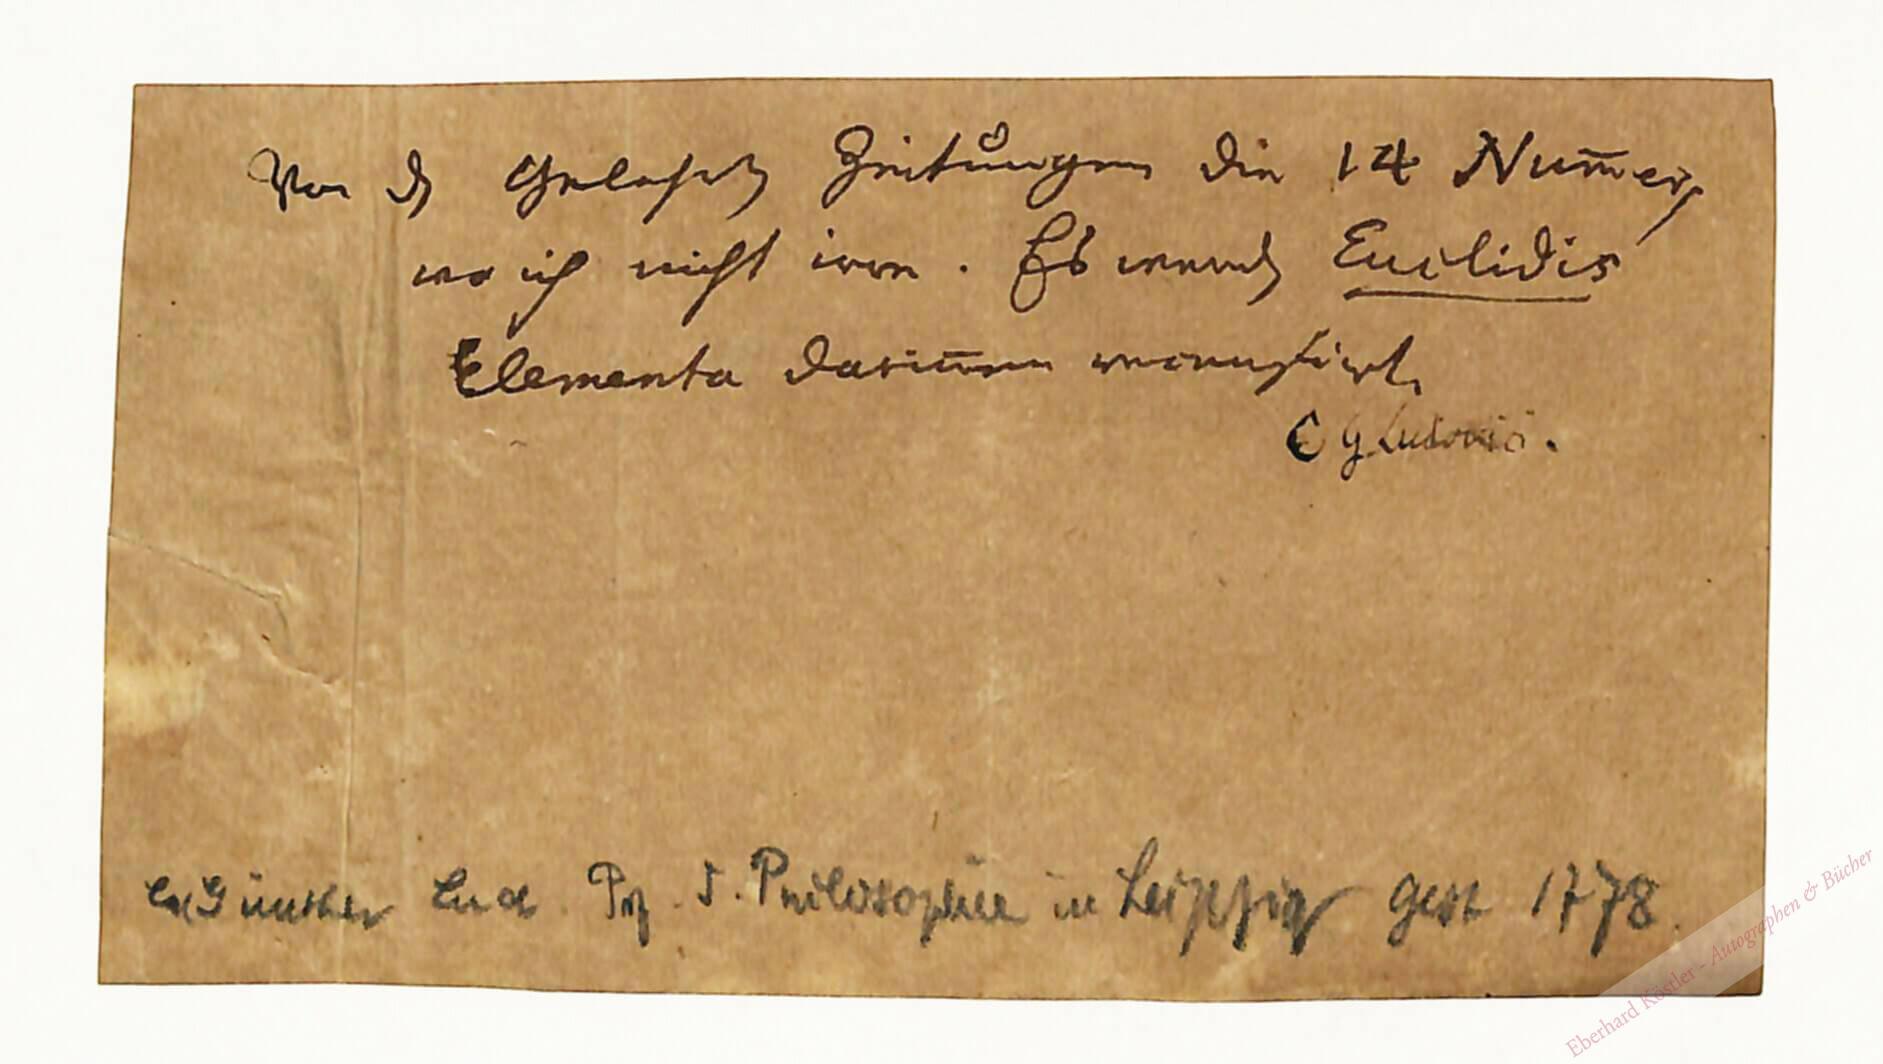 Von den Gelehrten Zeitungen die 14 Num̄er,
wo ich nicht irre. Es werden Euclidis
Elementa darin̄en recensirt.
C G Ludovici.
Günther Lud Prof. d. Philosophie in Leipzig gest 1778.
Eberhard Köstler - Autographen & Bücher